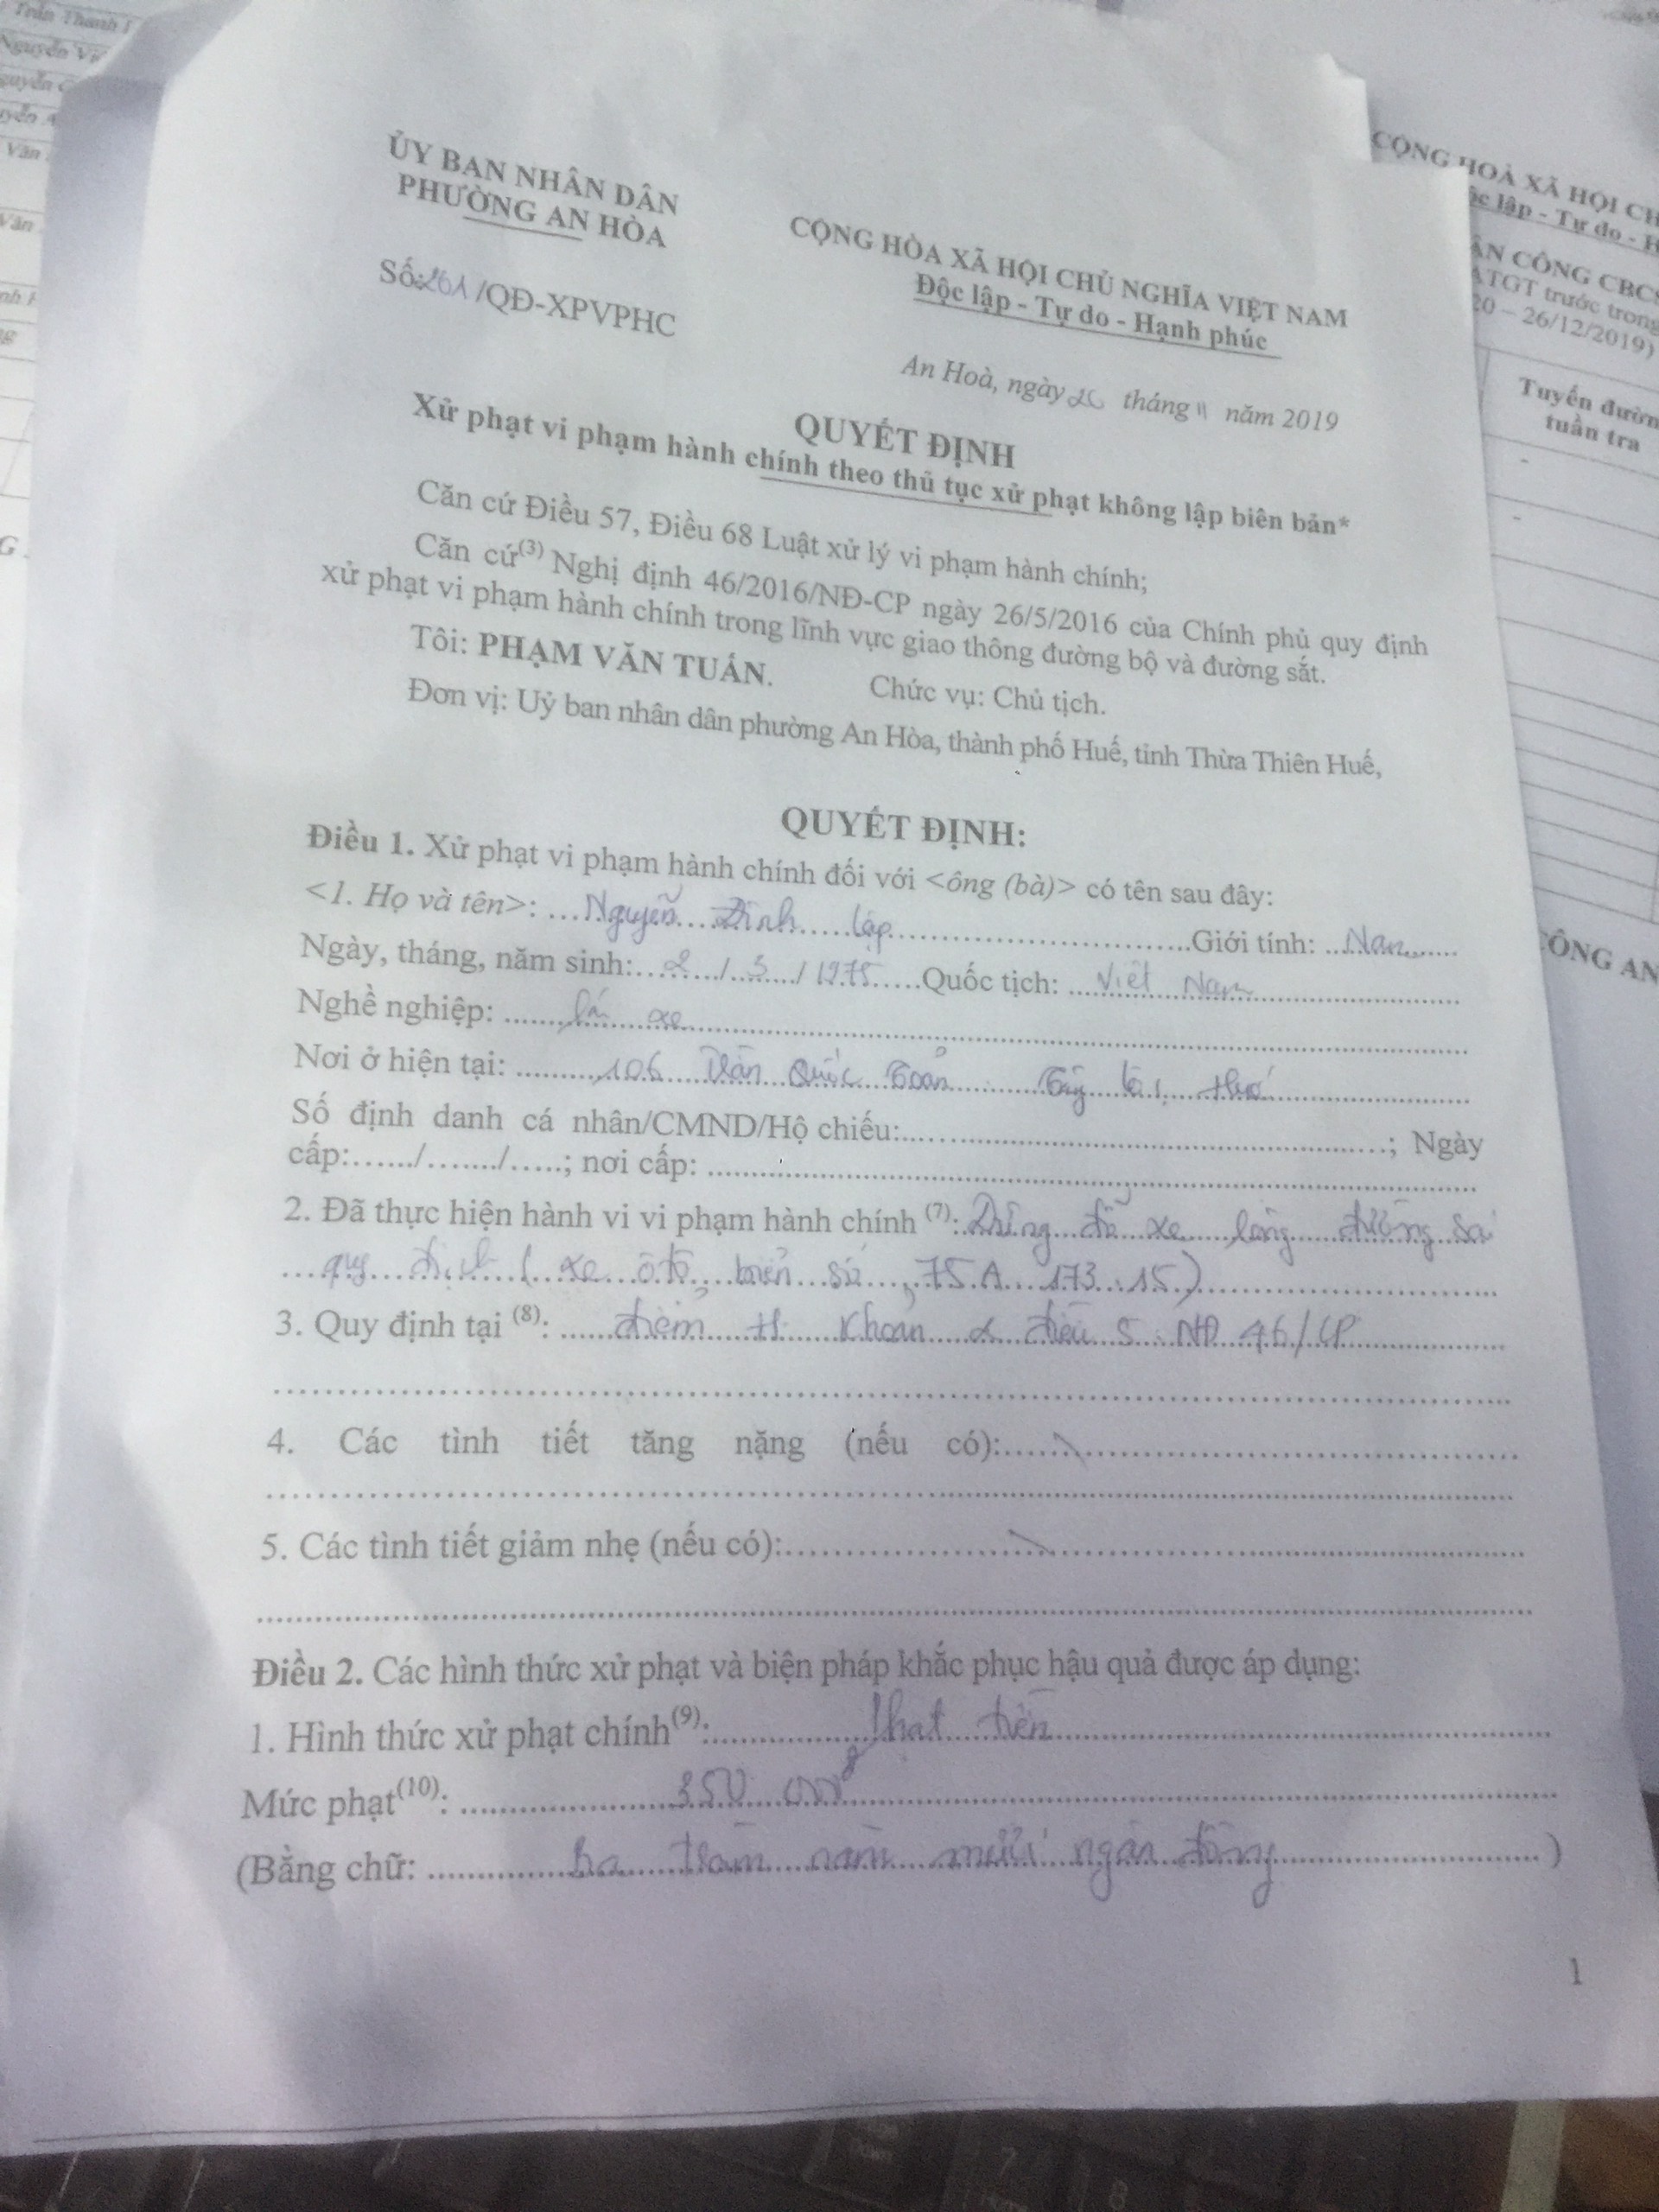 ỦY BAN NHÂN DÂN
PHƯỜNG AN HÒA
CỘNG HÒA XÃ HỘI CHỦ NGHĨA VIỆT NAM
Độc lập - Tự do - Hạnh phúc
Số:261/QĐ-XPVPHC
An Hoà, ngày 26 tháng 11 năm 2019
QUYẾT ĐỊNH
Xử phạt vi phạm hành chính theo thủ tục xử phạt không lập biên bản*
Căn cứ Điều 57, Điều 68 Luật xử lý vi phạm hành chính;
Căn cứ(3) Nghị định 46/2016/NĐ-CP ngày 26/5/2016 của Chính phủ quy định
xử phạt vi phạm hành chính trong lĩnh vực giao thông đường bộ và đường sắt.
Tôi: PHẠM VĂN TUẤN. Chức vụ: Chủ tịch.
Đơn vị: Uỷ ban nhân dân phường An Hòa, thành phố Huế, tỉnh Thừa Thiên Huế,
QUYẾT ĐỊNH:
Điều 1. Xử phạt vi phạm hành chính đối với <ông (bà)> có tên sau đây:
<1. Họ và tên>: Nguyễn Đình Lập Giới tính: Nam
Ngày, tháng, năm sinh: 2/5/1975 Quốc tịch: Việt Nam
Nghề nghiệp: lái xe
Nơi ở hiện tại: 106 Trần Quốc Toản Tây Lộc, Huế
Số định danh cá nhân/CMND/Hộ chiếu:; Ngày
cấp:....../......./.....; nơi cấp:
2. Đã thực hiện hành vi vi phạm hành chính (7): Dừng đỗ xe lòng đường sai
quy định (xe ôtô, biển số 75A 173.15)
3. Quy định tại (8): điểm H Khoản 2 điều 5 NĐ 46/CP
4. Các tình tiết tăng nặng (nếu có):
5. Các tình tiết giảm nhẹ (nếu có):
Điều 2. Các hình thức xử phạt và biện pháp khắc phục hậu quả được áp dụng:
1. Hình thức xử phạt chính(9): Phạt tiền
Mức phạt(10): 350 000đ
(Bằng chữ: ba trăm năm mươi ngàn đồng)
1
CỘNG HOÀ XÃ HỘI CH
ộc lập - Tự do - H
ÂN CÔNG CBCS
ATGT trước trong
20 – 26/12/2019)
Tuyến đườn
tuần tra
CÔNG AN
Trần Thanh
Nguyễn V
Văn